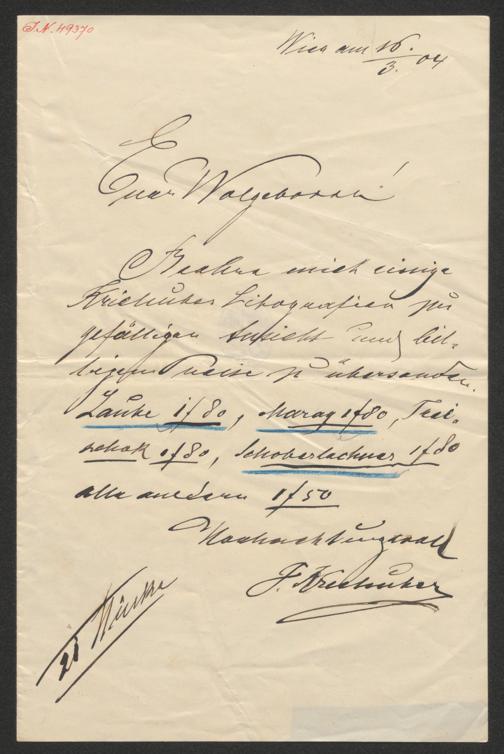 J.N. 49370
Wien am 16./3. 04
Euer Wolgeboren!
Beehre mich einige
Kriehuber Litografien zu
gefälligen Ansicht und bil-
ligem Preise zu übersenden.
Laube 1 f 80, Maray 1 f 80, Trei-
schok 1 f 80, Schoberlechner 1 f 80
alle andern 1 f 50
Hochachtungsvoll
F. Kriehuber
Stücke